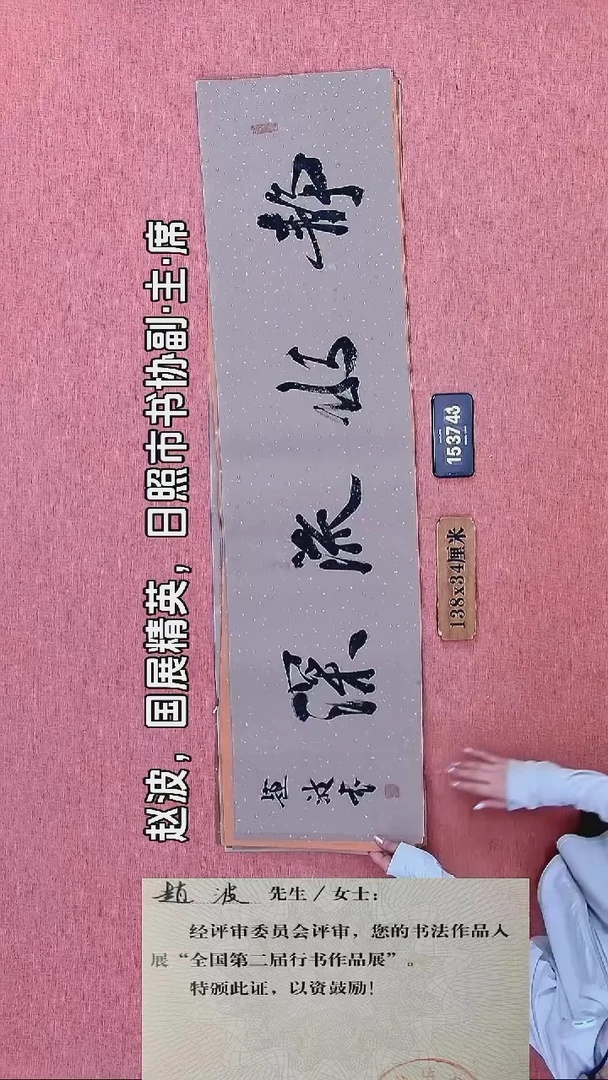 赵波，国展精英，日照市书协副·主·席
静水流深
趙波书
153743
138x34厘米
趙 波 先生/女士：
经评审委员会评审，您的书法作品入
展“全国第二届行书作品展”。
特颁此证，以资鼓励！